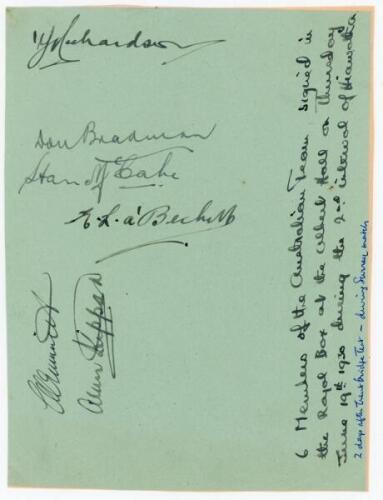 V Y Richardson
Don Bradman
Stan McCabe
E. L. a'Beckett
C V Grimmett
Alan Kippax
6 Members of the Australian Team signed in
the Royal Box at the Albert Hall on Thursday
June 19th 1930 during the 2nd interval of Hiawatha
2 days after Trent Bridge Test - during Surrey match